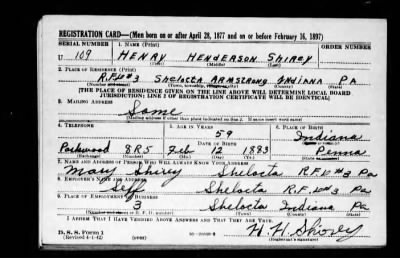 REGISTRATION CARD—(Men born on or after April 28, 1877 and on or before February 16, 1897)
SERIAL NUMBER 1. NAME (Print) ORDER NUMBER
U 109 HENRY HENDERSON SHIREY
(First) (Middle) (Last)
2. PLACE OF RESIDENCE (Print)
R.F.D #3 Shelocta ARMSTRONG INDIANA PA
(Number and street) (Town, township, village, or city) (County) (State)
[THE PLACE OF RESIDENCE GIVEN ON THE LINE ABOVE WILL DETERMINE LOCAL BOARD
JURISDICTION; LINE 2 OF REGISTRATION CERTIFICATE WILL BE IDENTICAL]
3. MAILING ADDRESS
Same
(Mailing address if other than place indicated on line 2. If same insert word same)
4. TELEPHONE 5. AGE IN YEARS 6. PLACE OF BIRTH
59 Indiana
DATE OF BIRTH (Town or county)
Parkwood 8R5 Feb 12 1883 Penna
(Exchange) (Number) (Mo.) (Day) (Yr.) (State or country)
7. NAME AND ADDRESS OF PERSON WHO WILL ALWAYS KNOW YOUR ADDRESS
Mary Shirey Shelocta R.F.D #3 Pa
8. EMPLOYER'S NAME AND ADDRESS
Self Shelocta R.F.D #3 Pa
9. PLACE OF EMPLOYMENT OR BUSINESS
3 Shelocta Indiana Pa
(Number and street or R. F. D. number) (Town) (County) (State)
I AFFIRM THAT I HAVE VERIFIED ABOVE ANSWERS AND THAT THEY ARE TRUE.
D. S. S. Form 1
(Revised 4-1-42) (over) H. H. Shirey
(Registrant's signature)